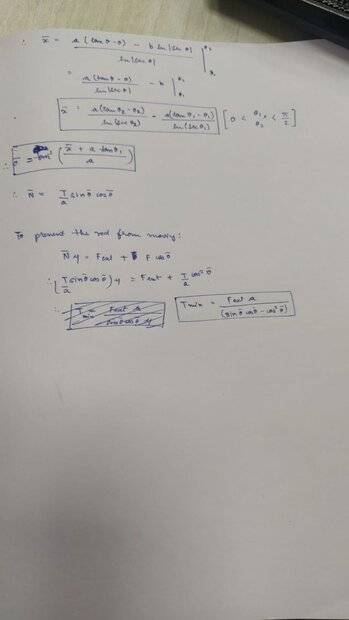 ∴ x̄ = a (tan θ - θ) - b ln|sec θ| / ln|sec θ| |θ₂ θ₁
= a (tan θ - θ) / ln|sec θ| - b |θ₂ θ₁
x̄ = a(tan θ₂ - θ₂) / ln(sec θ₂) - a(tan θ₁ - θ₁) / ln(sec θ₁) [0 < θ₁, θ₂ < π/2]
∴ θ̄ = tan⁻¹ (x̄ + a tan θ₁ / a)
∴ N̄ = T/a sin θ̄ cos θ̄
To prevent the rod from moving:
N̄ μ = Fext + F cos θ̄
∴ (T/a sin θ̄ cos θ̄) μ = Fext + T/a cos² θ̄
∴ Tmin = Fext a / sin θ cos θ μ
Tmin = Fext a / (sin θ̄ cos θ̄ - cos² θ̄)